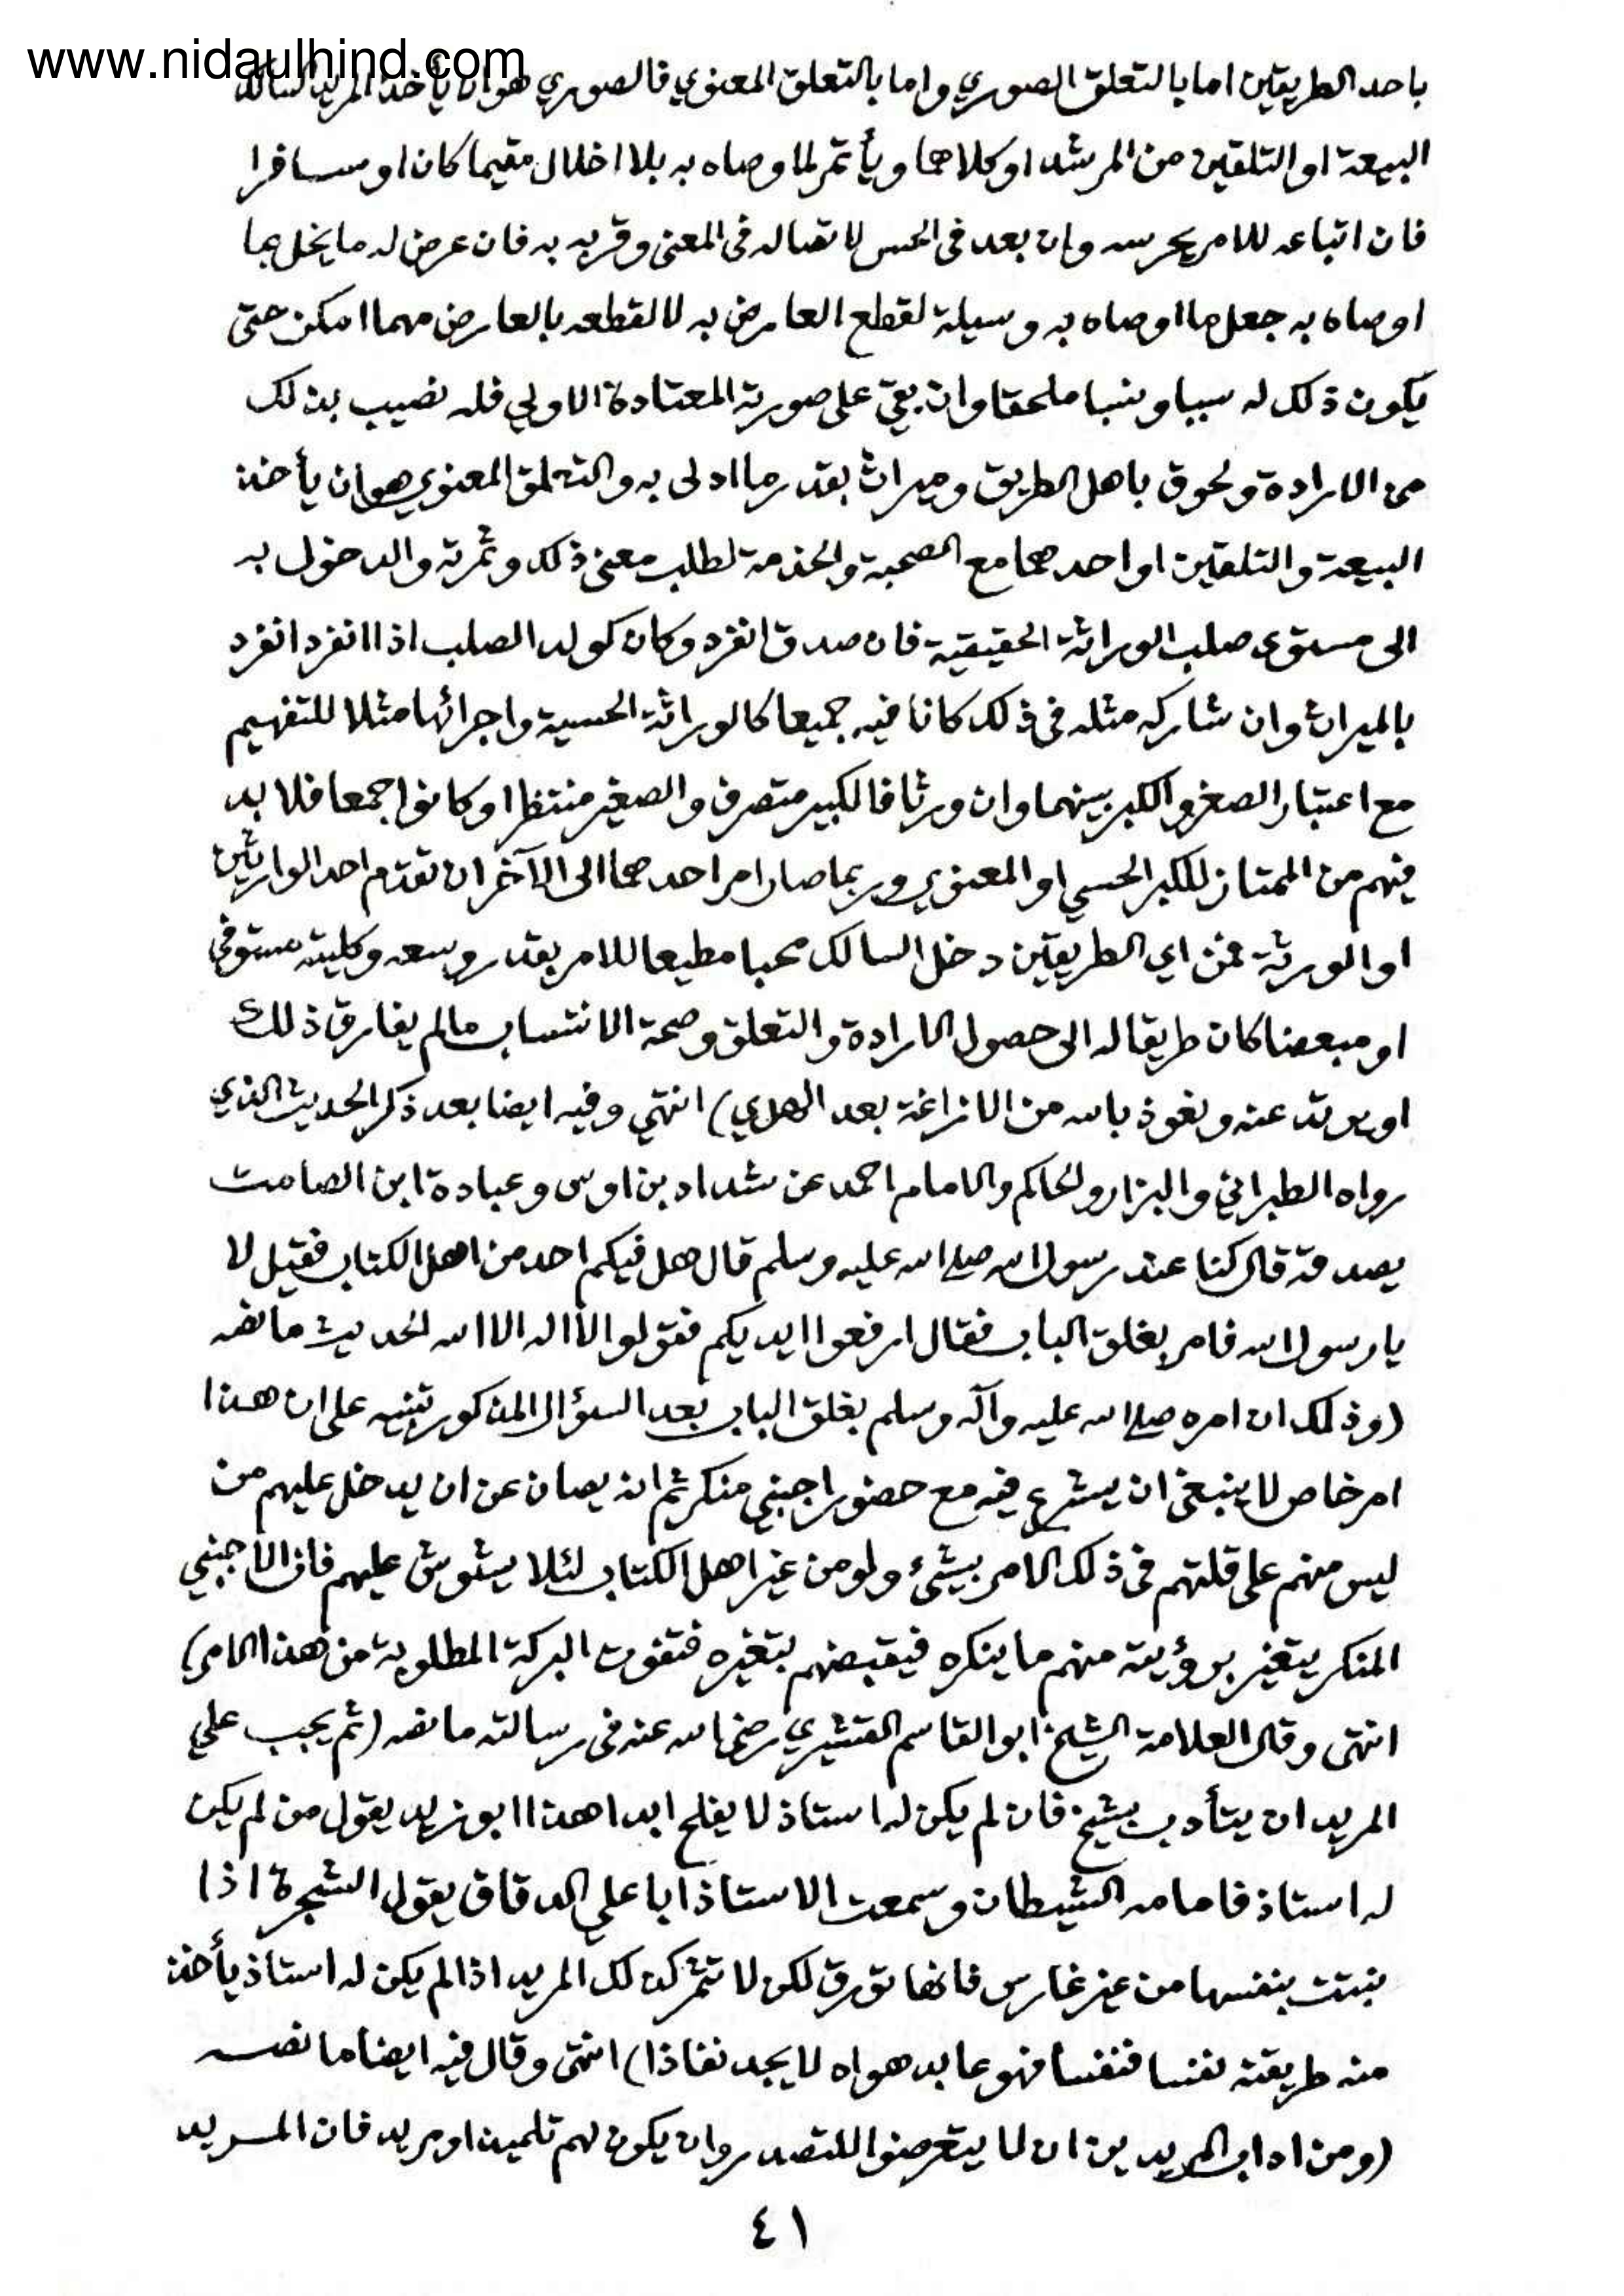 www.nidaulhind.com
باحد الطريقين اما بالتعلق الصوري واما بالتعلق المعنوي فالصوري هو ان يأخذ المريد السالك
البيعة او التلقين من المرشد او كلاهما ويأتمر لما وصاه به بلا اخلال مقيما كان او مسافرا
فان اتباعه للامر يحرسه وان بعد في الحس لاتصاله في المعنى وقربه به فان عرض له ما يخل بما
اوصاه به جعل ما اوصاه به وسيلة لقطع العارض به لا لقطعه بالعارض مهما امكن حتى
يكون ذلك له سببا ونسبا ملحقا وان بقي على صورته المعتادة الاولى فله نصيب بذلك
من الارادة ولحوق باهل الطريق وميراث بقدر ما ادلى به والتعلق المعنوي هو ان يأخذ
البيعة والتلقين او احدهما مع الصحبة والخدمة لطلب معنى ذلك وثمرته والدخول به
الى مستوى صلب الوراثة الحقيقية فان صدق انفرد وكان كولد الصلب اذا انفرد انفرد
بالميراث وان شاركه مثله في ذلك كانا فيه جميعا كالوراثة الحسية واجرائها مثلا للتفهيم
مع اعتبار الصغر والكبر بينهما وان ورثا فالكبير متصرف والصغير منتظر او كانوا جمعا فلا بد
فيهم من الممتاز للكبر الحسي او المعنوي وربما صار امر احدهما الى الآخر ان تقدم احد الوارثين
او الورثة فمن اي الطريقين دخل السالك محبا مطيعا للامر بقدر وسعه وكليته مستوفى
او مبعضا كان طريقا له الى حصول الارادة والتعلق وصحة الانتساب ما لم يفارق ذلك
او يرتد عنه ونعوذ بالله من الازاغة بعد الهدي) انتهي وفيه ايضا بعد ذكر الحديث الذي
رواه الطبراني والبزار والحاكم والامام احمد عن شداد بن اوس وعبادة ابن الصامت
يصدقه قال كنا عند رسول الله صلى الله عليه وسلم قال هل فيكم احد من اهل الكتاب فقيل لا
يا رسول الله فامر بغلق الباب فقال ارفعوا ايديكم فقولوا لا اله الا الله الحديث ما نصه
(وذلك ان امره صلى الله عليه وآله وسلم بغلق الباب بعد السؤال المذكور تنبيه على ان هذا
امر خاص لا ينبغي ان يشرع فيه مع حضور اجنبي منكر ثم انه يصان عن ان يدخل عليهم من
ليس منهم على قلتهم في ذلك الامر بشئ ولو من غير اهل الكتاب لئلا يشوش عليهم فان الاجنبي
المنكر يتغير برؤيته منهم ما ينكره فيقبضهم بتغيره فتفوت البركة المطلوبة من هذا الامر)
انتهى وقال العلامة الشيخ ابو القاسم القشيري رضي الله عنه في رسالته ما نصه (ثم يجب علي
المريد ان يتأدب بشيخ فان لم يكن له استاذ لا يفلح ابدا هذا ابو زيد يقول من لم يكن
له استاذ فامامه الشيطان وسمعت الاستاذ ابا علي الدقاق يقول الشجرة اذا
نبتت بنفسها من غير غارس فانها تورق لكن لا تثمر كذلك المريد اذا لم يكن له استاذ يأخذ
منه طريقته نفسا فنفسا فهو عابد هواه لا يجد نفاذا) انتهى وقال فيه ايضا ما نصه
(ومن اداب المريدين ان لا يتعرضوا للتصدر وان يكون لهم تلميذ او مريد فان المريد
٤١